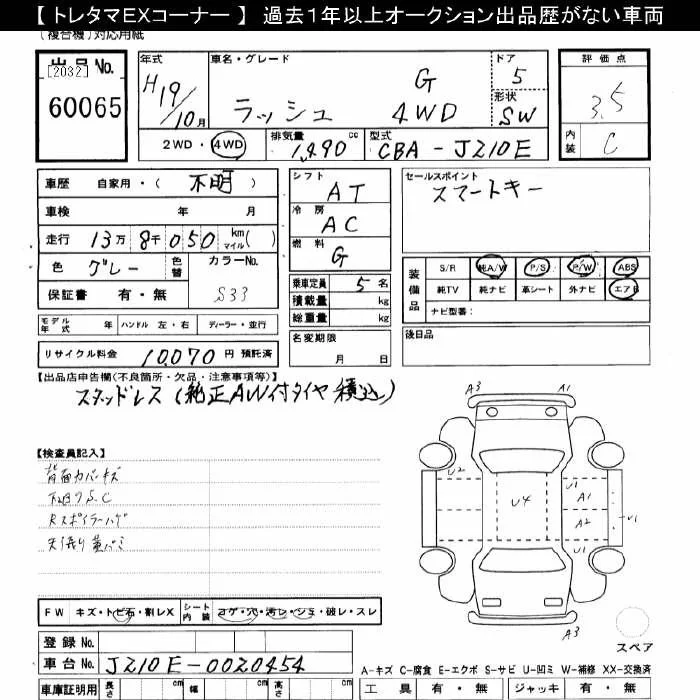 【 トレタマEXコーナー 】 過去1年以上オークション出品歴がない車両
(複合機)対応用紙
出品No.
[2032]
60065
年式
H19/10月
車名・グレード
G
ラッシュ 4WD
ドア
5
形状
SW
評価点
3.5
内装
C
2WD・4WD
排気量
1,490 cc
型式
CBA-JZ10E
車歴 自家用・( 不明 )
車検 年 月
走行 13万 8千 050 km マイル( )
色 グレー 色替 カラーNo.
保証書 有・無 S33
モデル年式 年 ハンドル 左・右 ディーラー・並行
リサイクル料金 10,070 円 預託済
シフト AT
冷房 AC
燃料 G
乗車定員 5 名
積載量 kg
総重量 kg
名変期限
月 日
セールスポイント
スマートキー
装備品
S/R 純A/W P/S P/W ABS
純TV 純ナビ 革シート 外ナビ エアB
ナビ型番:
後日品
【出品店申告欄(不良箇所・欠品・注意事項等)】
スタッドレス(純正AW付タイヤ積込)
【検査員記入】
背面カバーキズ
下廻りS.C
Rスポイラーハゲ
天張り
A3 A1
U2 U1
U4 A1
A2
U1 U1
A3
スペア
FW キズ・トビ石・割レX シート内装 コゲ・穴・汚レ・シミ・破レ・スレ
登録No.
車台No. JZ10E-0020454
車庫証明用 長さ cm 幅 cm 高さ cm
A-キズ C-腐食 E-エクボ S-サビ U-凹ミ W-補修 XX-交換済
工具 有・無 ジャッキ 有・無